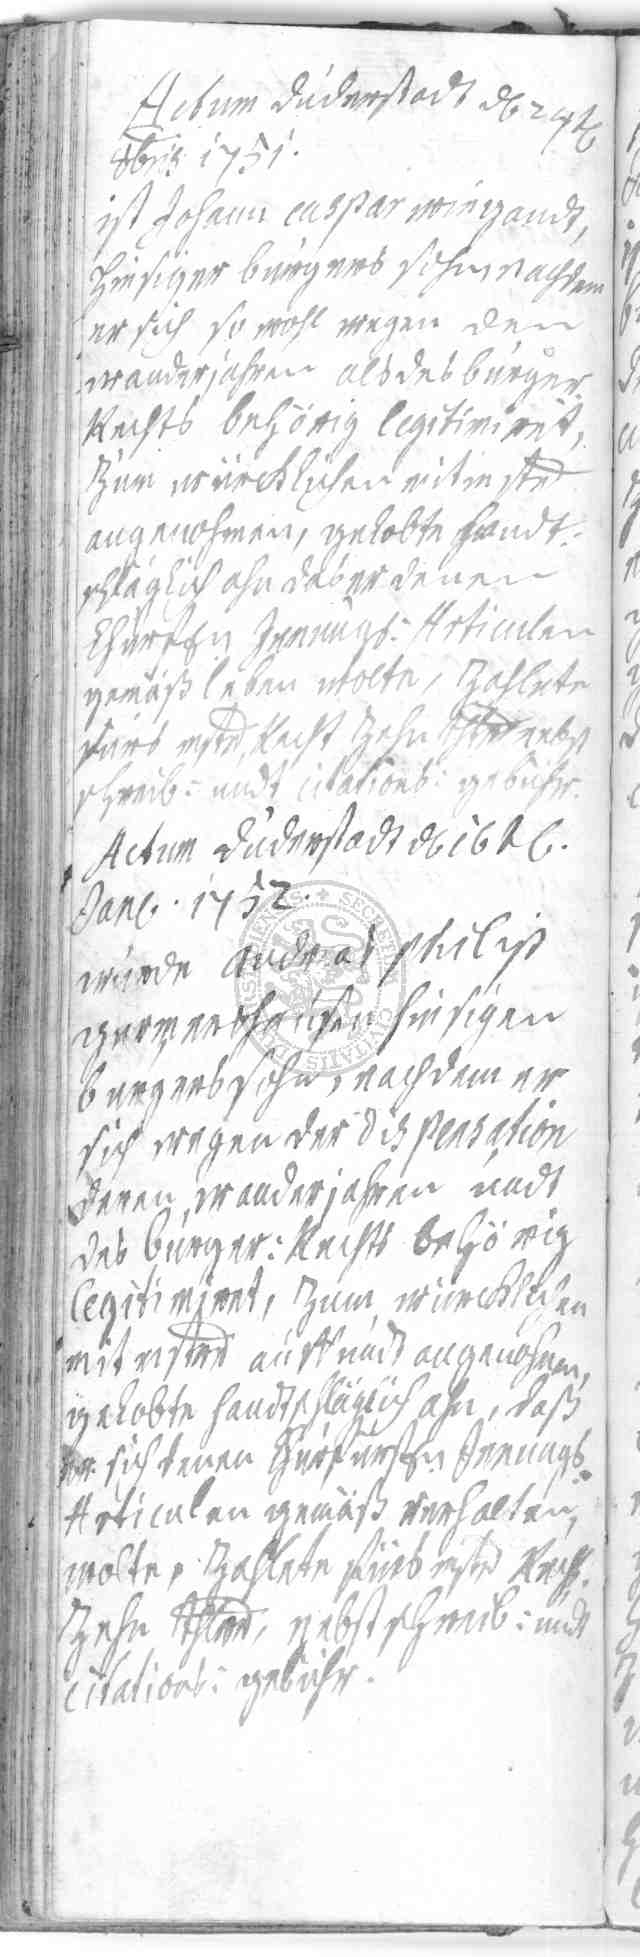 Actum duderstadt d 29t
8bris 1751.
ist Johann caspar wiegandt,
hiesiger burgers sohn nachdem
er sich so wohl wegen den
wanderjahren als des bürger
Rechts behörig legitimiret,
zum würcklichen mitmstr
angenohmen, gelobte handt-
schläglich ahn dab er denen
Churfstn Innungs: Articulen
gemäß leben wolte, Zahlete
fürs mstr Recht Zehn thlr nebst
schreib: undt citations: gebühr.
Actum duderstadt d 16t
Jan. 1752.
wurde andreas philip
germershausen hiesigen
burgers sohn, nachdem er
sich wegen der dispensation
deren wanderjahren undt
des bürger: Rechts behörig
legitimiret, zum würcklichen
mitmstr auff undt angenohmen,
gelobte handtschläglich ahn, daß
er sich denen Churfürstn Innungs
Articulen gemäß verhalten
wolte, Zahlete fürs mstr Recht
Zehn thlr, nebst schreib: undt
citations: gebühr.
SECRET CIVITATIS